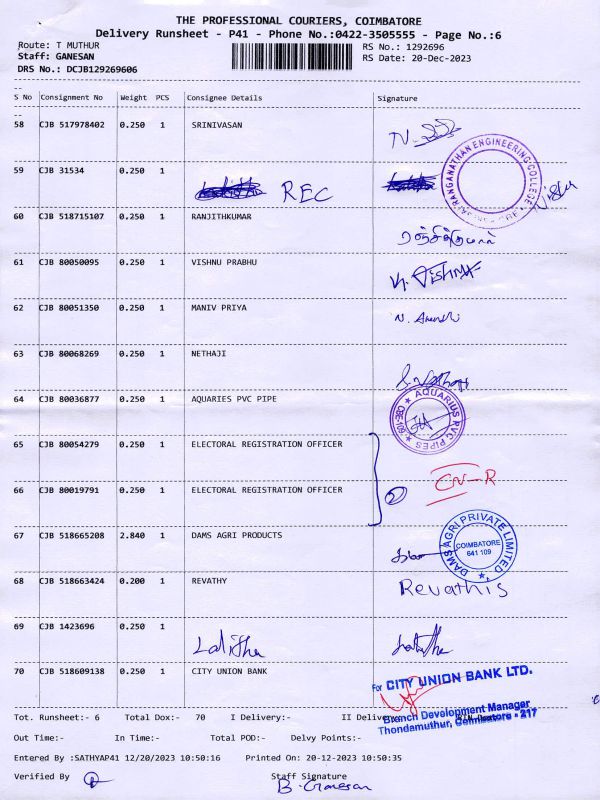 THE PROFESSIONAL COURIERS, COIMBATORE
Delivery Runsheet - P41 - Phone No.:0422-3505555 - Page No.:6
Route: T MUTHUR RS No.: 1292696
Staff: GANESAN RS Date: 20-Dec-2023
DRS No.: DCJB129269606
--
S No Consignment No Weight PCS Consignee Details Signature
--
58 CJB 517978402 0.250 1 SRINIVASAN
59 CJB 31534 0.250 1
REC
RANGANATHAN ENGINEERING COLLEGE
60 CJB 518715107 0.250 1 RANJITHKUMAR
ரஞ்சித்குமார்
61 CJB 80050095 0.250 1 VISHNU PRABHU
62 CJB 80051350 0.250 1 MANIV PRIYA
63 CJB 80068269 0.250 1 NETHAJI
64 CJB 80036877 0.250 1 AQUARIES PVC PIPE
★ AQUARIUS PVC PIPES ★ CBE-109
65 CJB 80054279 0.250 1 ELECTORAL REGISTRATION OFFICER
66 CJB 80019791 0.250 1 ELECTORAL REGISTRATION OFFICER
2
67 CJB 518665208 2.840 1 DAMS AGRI PRODUCTS
DAMS AGRI PRIVATE LIMITED ★
COIMBATORE
641 109
68 CJB 518663424 0.200 1 REVATHY
Revathis
69 CJB 1423696 0.250 1
Lalitha Lalitha
70 CJB 518609138 0.250 1 CITY UNION BANK
For CITY UNION BANK LTD.
Tot. Runsheet:- 6 Total Dox:- 70 I Delivery:- II Delivery:-
Branch Development Manager
Thondamuthur, Coimbatore - 217
Out Time:- In Time:- Total POD:- Delvy Points:-
Entered By :SATHYAP41 12/20/2023 10:50:16 Printed On: 20-12-2023 10:50:35
Verified By Staff Signature
B. Ganesan